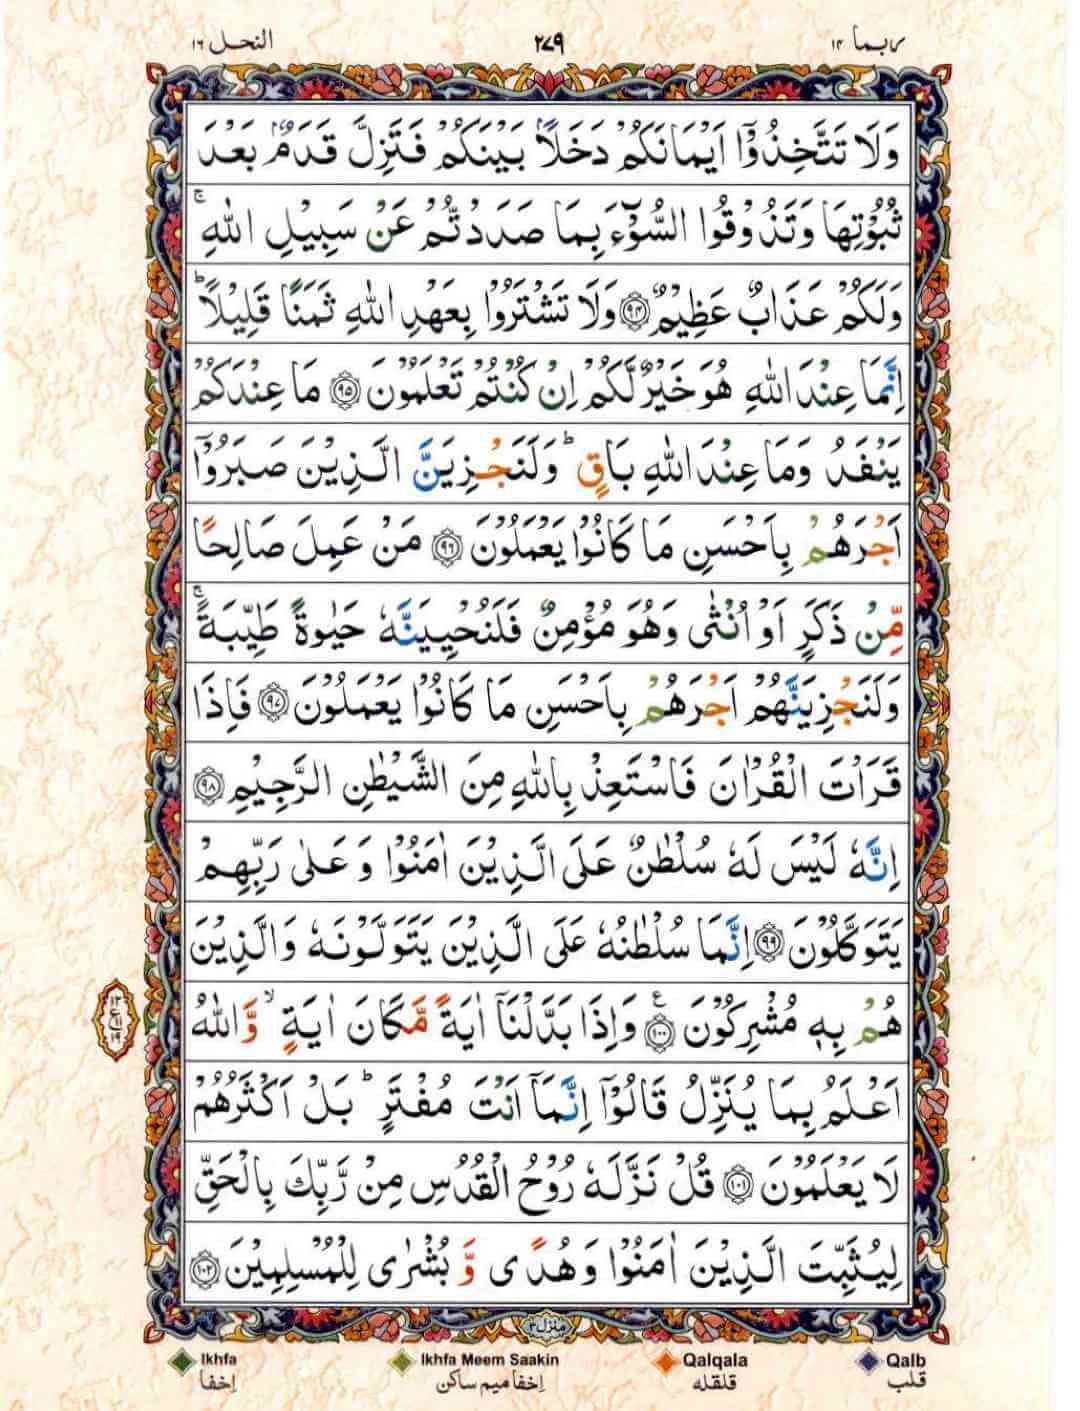 ربما ١٤ ٢٧٩ النحل ١٦
وَلَا تَتَّخِذُوْۤا اَيْمَانَكُمْ دَخَلًاۢ بَيْنَكُمْ فَتَزِلَّ قَدَمٌۢ بَعْدَ
ثُبُوْتِهَا وَتَذُوْقُوا السُّوْٓءَ بِمَا صَدَدْتُّمْ عَنْ سَبِيْلِ اللّٰهِ ۚ
وَلَكُمْ عَذَابٌ عَظِيْمٌ ﴿٩٤﴾ وَلَا تَشْتَرُوْا بِعَهْدِ اللّٰهِ ثَمَنًا قَلِيْلًا ؕ
اِنَّمَا عِنْدَ اللّٰهِ هُوَ خَيْرٌ لَّكُمْ اِنْ كُنْتُمْ تَعْلَمُوْنَ ﴿٩٥﴾ مَا عِنْدَكُمْ
يَنْفَدُ وَمَا عِنْدَ اللّٰهِ بَاقٍ ؕ وَلَنَجْزِيَنَّ الَّذِيْنَ صَبَرُوْۤا
اَجْرَهُمْ بِاَحْسَنِ مَا كَانُوْا يَعْمَلُوْنَ ﴿٩٦﴾ مَنْ عَمِلَ صَالِحًا
مِّنْ ذَكَرٍ اَوْ اُنْثٰى وَهُوَ مُؤْمِنٌ فَلَنُحْيِيَنَّهٗ حَيٰوةً طَيِّبَةً ۚ
وَلَنَجْزِيَنَّهُمْ اَجْرَهُمْ بِاَحْسَنِ مَا كَانُوْا يَعْمَلُوْنَ ﴿٩٧﴾ فَاِذَا
قَرَاْتَ الْقُرْاٰنَ فَاسْتَعِذْ بِاللّٰهِ مِنَ الشَّيْطٰنِ الرَّجِيْمِ ﴿٩٨﴾
اِنَّهٗ لَيْسَ لَهٗ سُلْطٰنٌ عَلَى الَّذِيْنَ اٰمَنُوْا وَ عَلٰى رَبِّهِمْ
يَتَوَكَّلُوْنَ ﴿٩٩﴾ اِنَّمَا سُلْطٰنُهٗ عَلَى الَّذِيْنَ يَتَوَلَّوْنَهٗ وَالَّذِيْنَ
هُمْ بِهٖ مُشْرِكُوْنَ ﴿١٠٠﴾ ع وَاِذَا بَدَّلْنَاۤ اٰيَةً مَّكَانَ اٰيَةٍ ۙ وَّاللّٰهُ
اَعْلَمُ بِمَا يُنَزِّلُ قَالُوْۤا اِنَّمَاۤ اَنْتَ مُفْتَرٍ ؕ بَلْ اَكْثَرُهُمْ
لَا يَعْلَمُوْنَ ﴿١٠١﴾ قُلْ نَزَّلَهٗ رُوْحُ الْقُدُسِ مِنْ رَّبِّكَ بِالْحَقِّ
لِيُثَبِّتَ الَّذِيْنَ اٰمَنُوْا وَهُدًى وَّ بُشْرٰى لِلْمُسْلِمِيْنَ ﴿١٠٢﴾
منزل ٣
Ikhfa Ikhfa Meem Saakin Qalqala Qalb
إخفا إخفا ميم ساكن قلقله قلب